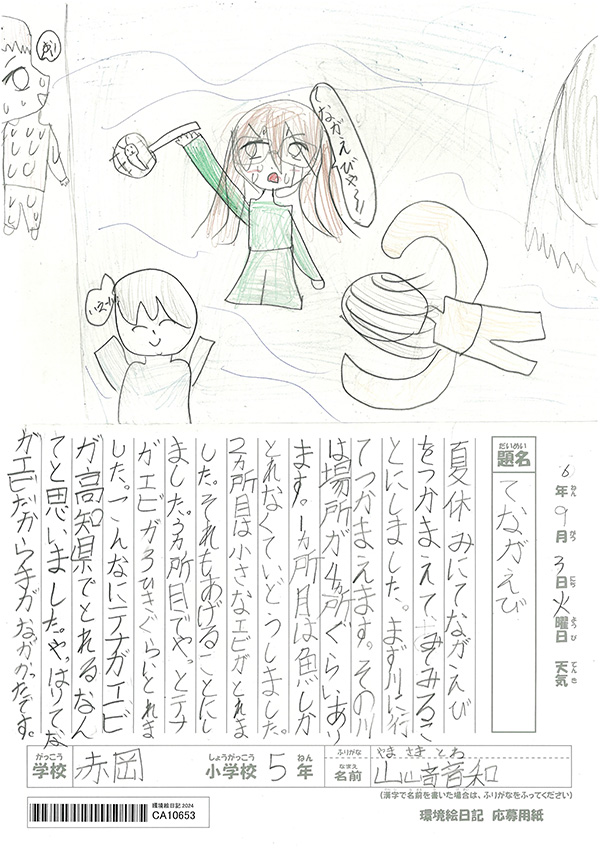 いえーい
てながえびや〜!!
6年9月3日火曜日 天気
だいめい
題名
てながえび
夏休みにてながえび
をつかまえてみてみるこ
とにしました。まず川に行
てつかまえます。その川
は場所が4ヵ所ぐらいあり
ます。1ヵ所目は魚しか
とれなくていどうしました。
2ヵ所目は小さなエビがとれま
した。それもあげることにし
ました。3ヵ所目でやっとテナ
ガエビが3びきぐらいとれま
した。こんなにテナガエビ
が高知県でとれるなん
てと思いました。やっぱりてな
ガエビだから手がながかったです。
がっこう
学校
赤岡
しょうがっこう
小学校
5年
ふりがな
やまさき とわ
なまえ
名前
山﨑音和
(漢字で名前を書いた場合は、ふりがなをふってください)
環境絵日記2024
CA10653
環境絵日記 応募用紙